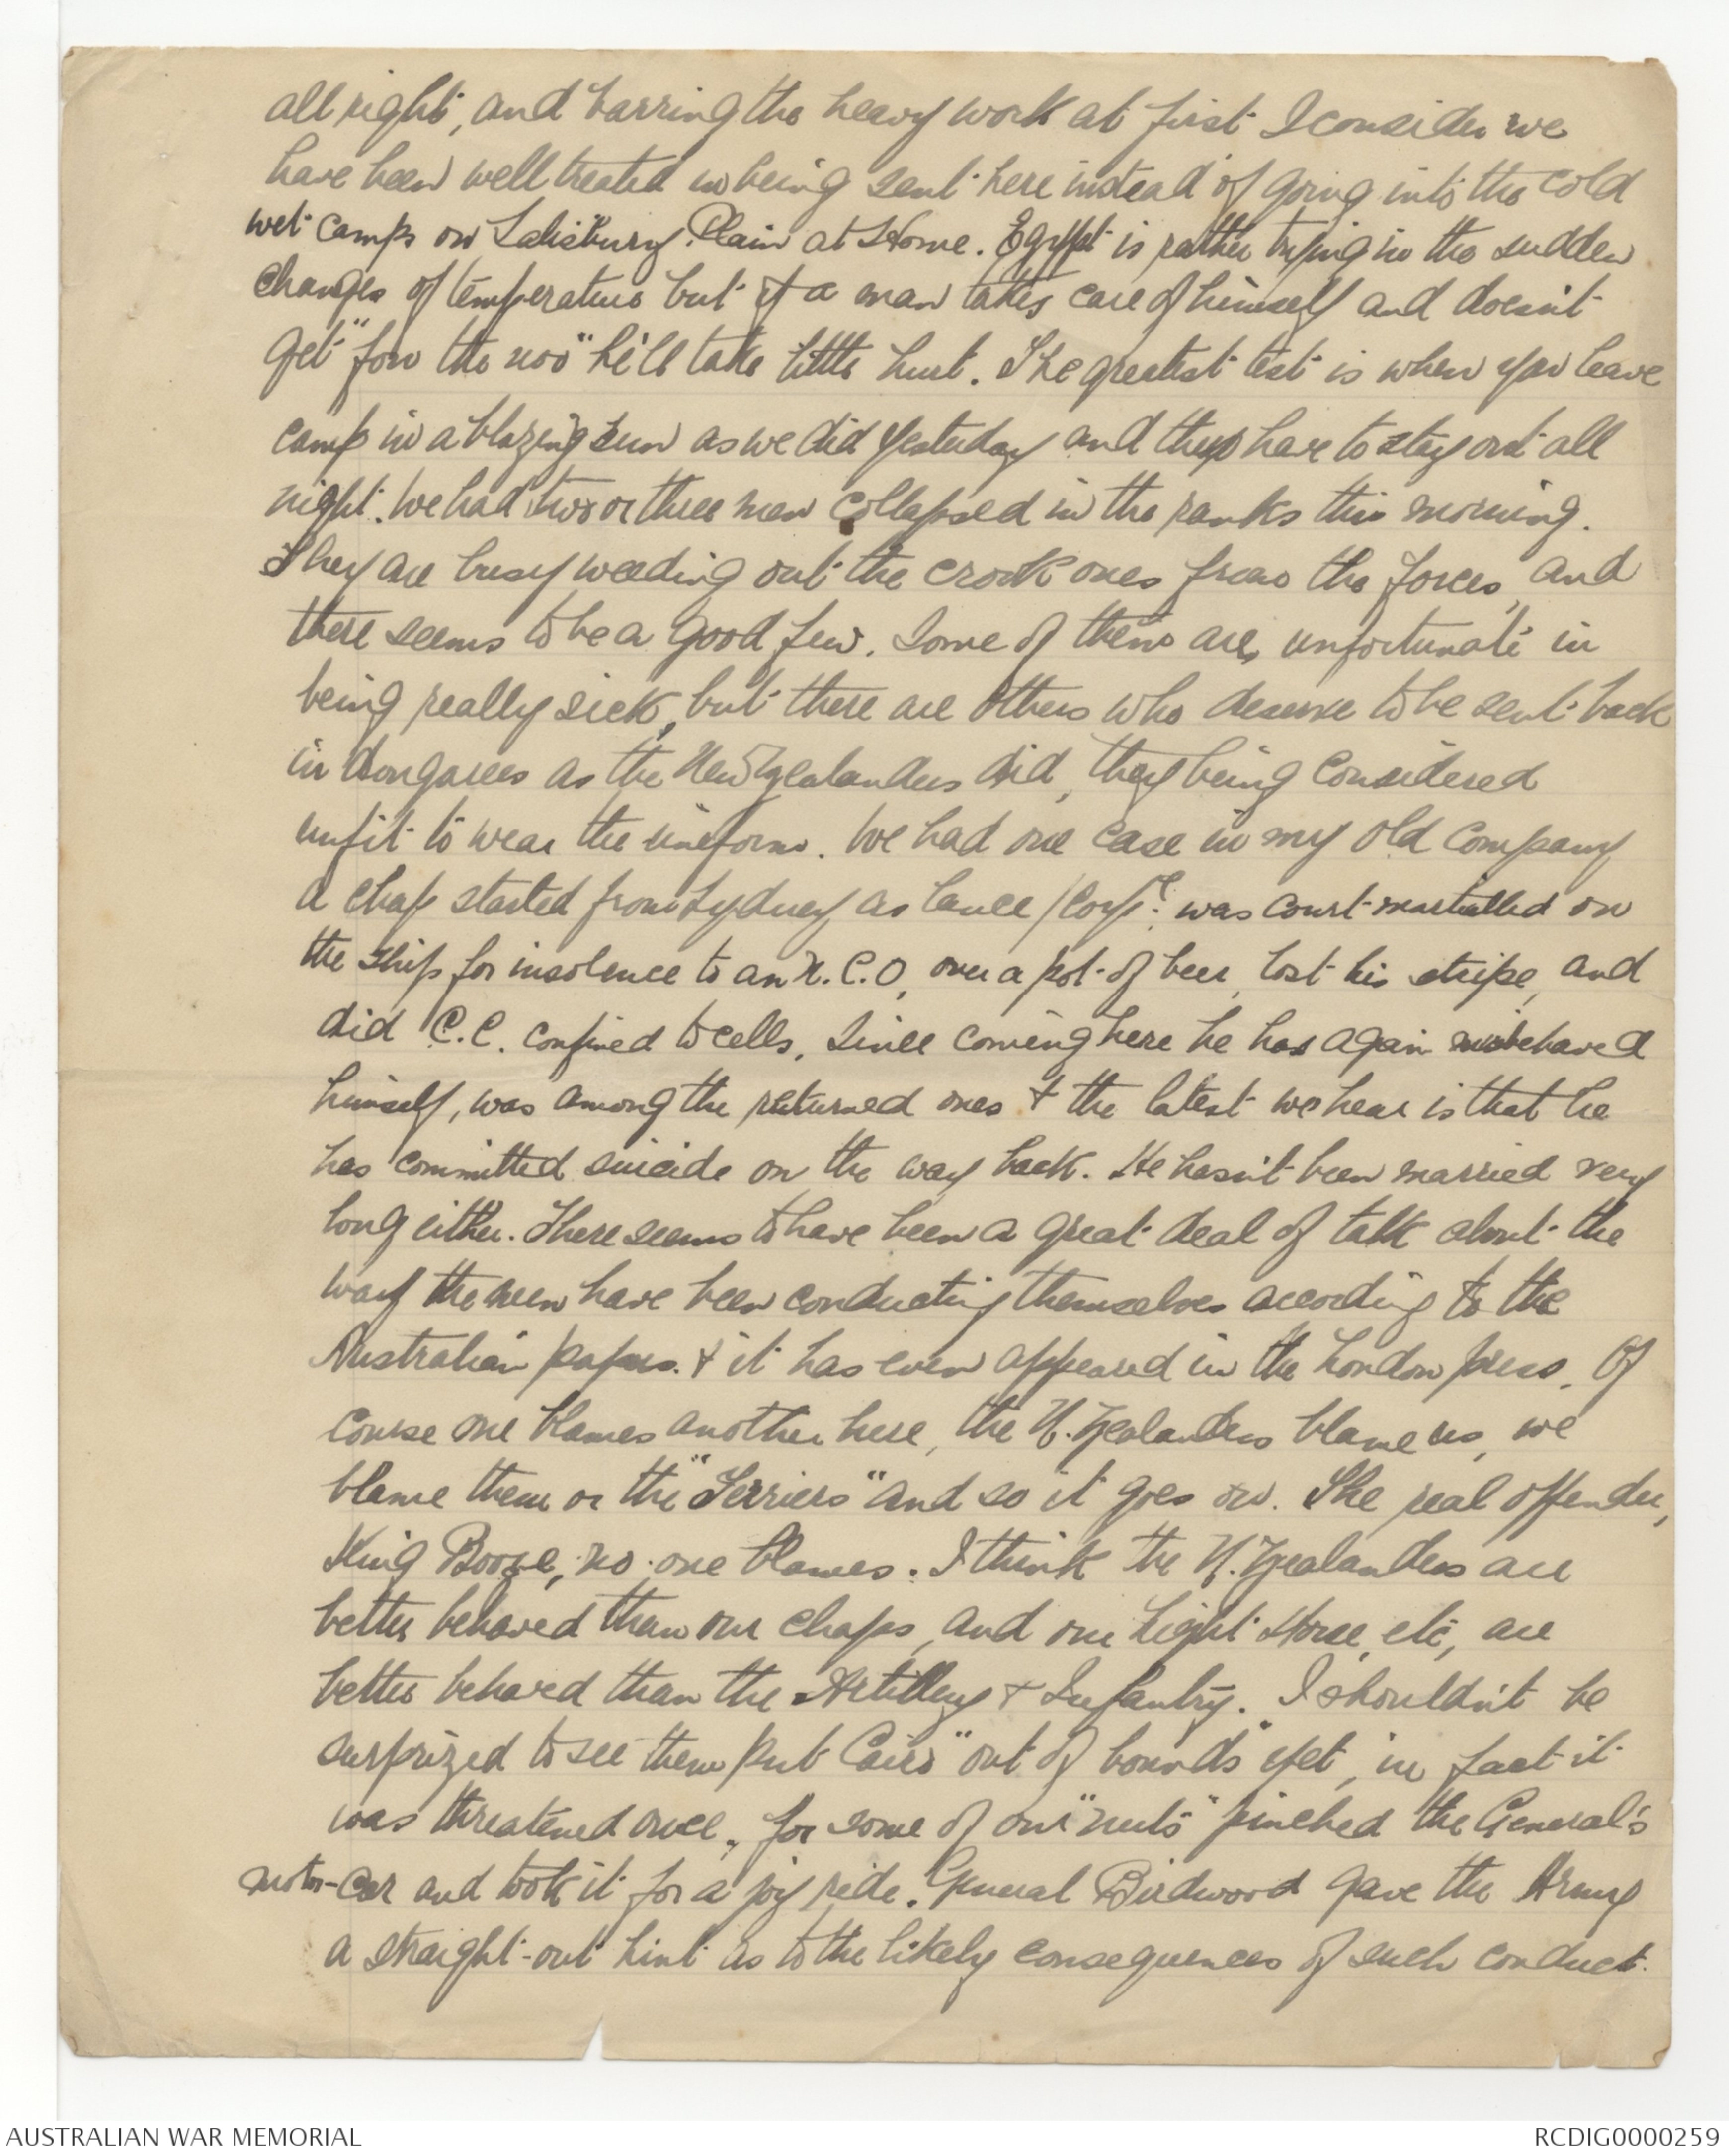 all right, and barring the heavy work at first I consider we
have been well treated in being sent here instead of going into the cold
wet camps on Salisbury Plain at Home. Egypt is rather trying in the sudden
changes of temperature but if a man takes care of himself and doesn't
get "fou the noo" he'll take little hurt. The greatest test is when you leave
camp in a blazing sun as we did yesterday and then have to stay out all
night. We had two or three men collapsed in the ranks this morning.
They are busy weeding out the crook ones from the forces, and
there seems to be a good few. Some of them are, unfortunate in
being really sick, but there are others who deserve to be sent back
in dongarees as the New Zealanders did, they being considered
unfit to wear the uniform. We had one case in my old Company
a chap started from Sydney as lance/Corpl. was court-martialled on
the ship for insolence to an N.C.O, over a pot of beer, lost his stripe, and
did C.C. confined to cells. Since coming here he has again misbehaved
himself, was among the returned ones & the latest we hear is that he
has committed suicide on the way back. He hasn't been married very
long either. There seems to have been a great deal of talk about the
way the men have been conducting themselves according to the
Australian papers. & it has even appeared in the London press. Of
course one blames another here, the N. Zealanders blame us, we
blame them or the "Terriers" and so it goes on. The real offender,
King Booze, no one blames. I think the N. Zealanders are
better behaved than our chaps, and our Light Horse, etc, are
better behaved than the Artillery & Infantry. I shouldn't be
surprized to see them put Cairo "out of bounds" yet, in fact it
was threatened once, for some of our "nuts" pinched the General's
motor-car and took it for a joy ride. General Birdwood gave the Army
a straight-out hint as to the likely consequences of such conduct.
AUSTRALIAN WAR MEMORIAL
RCDIG0000259